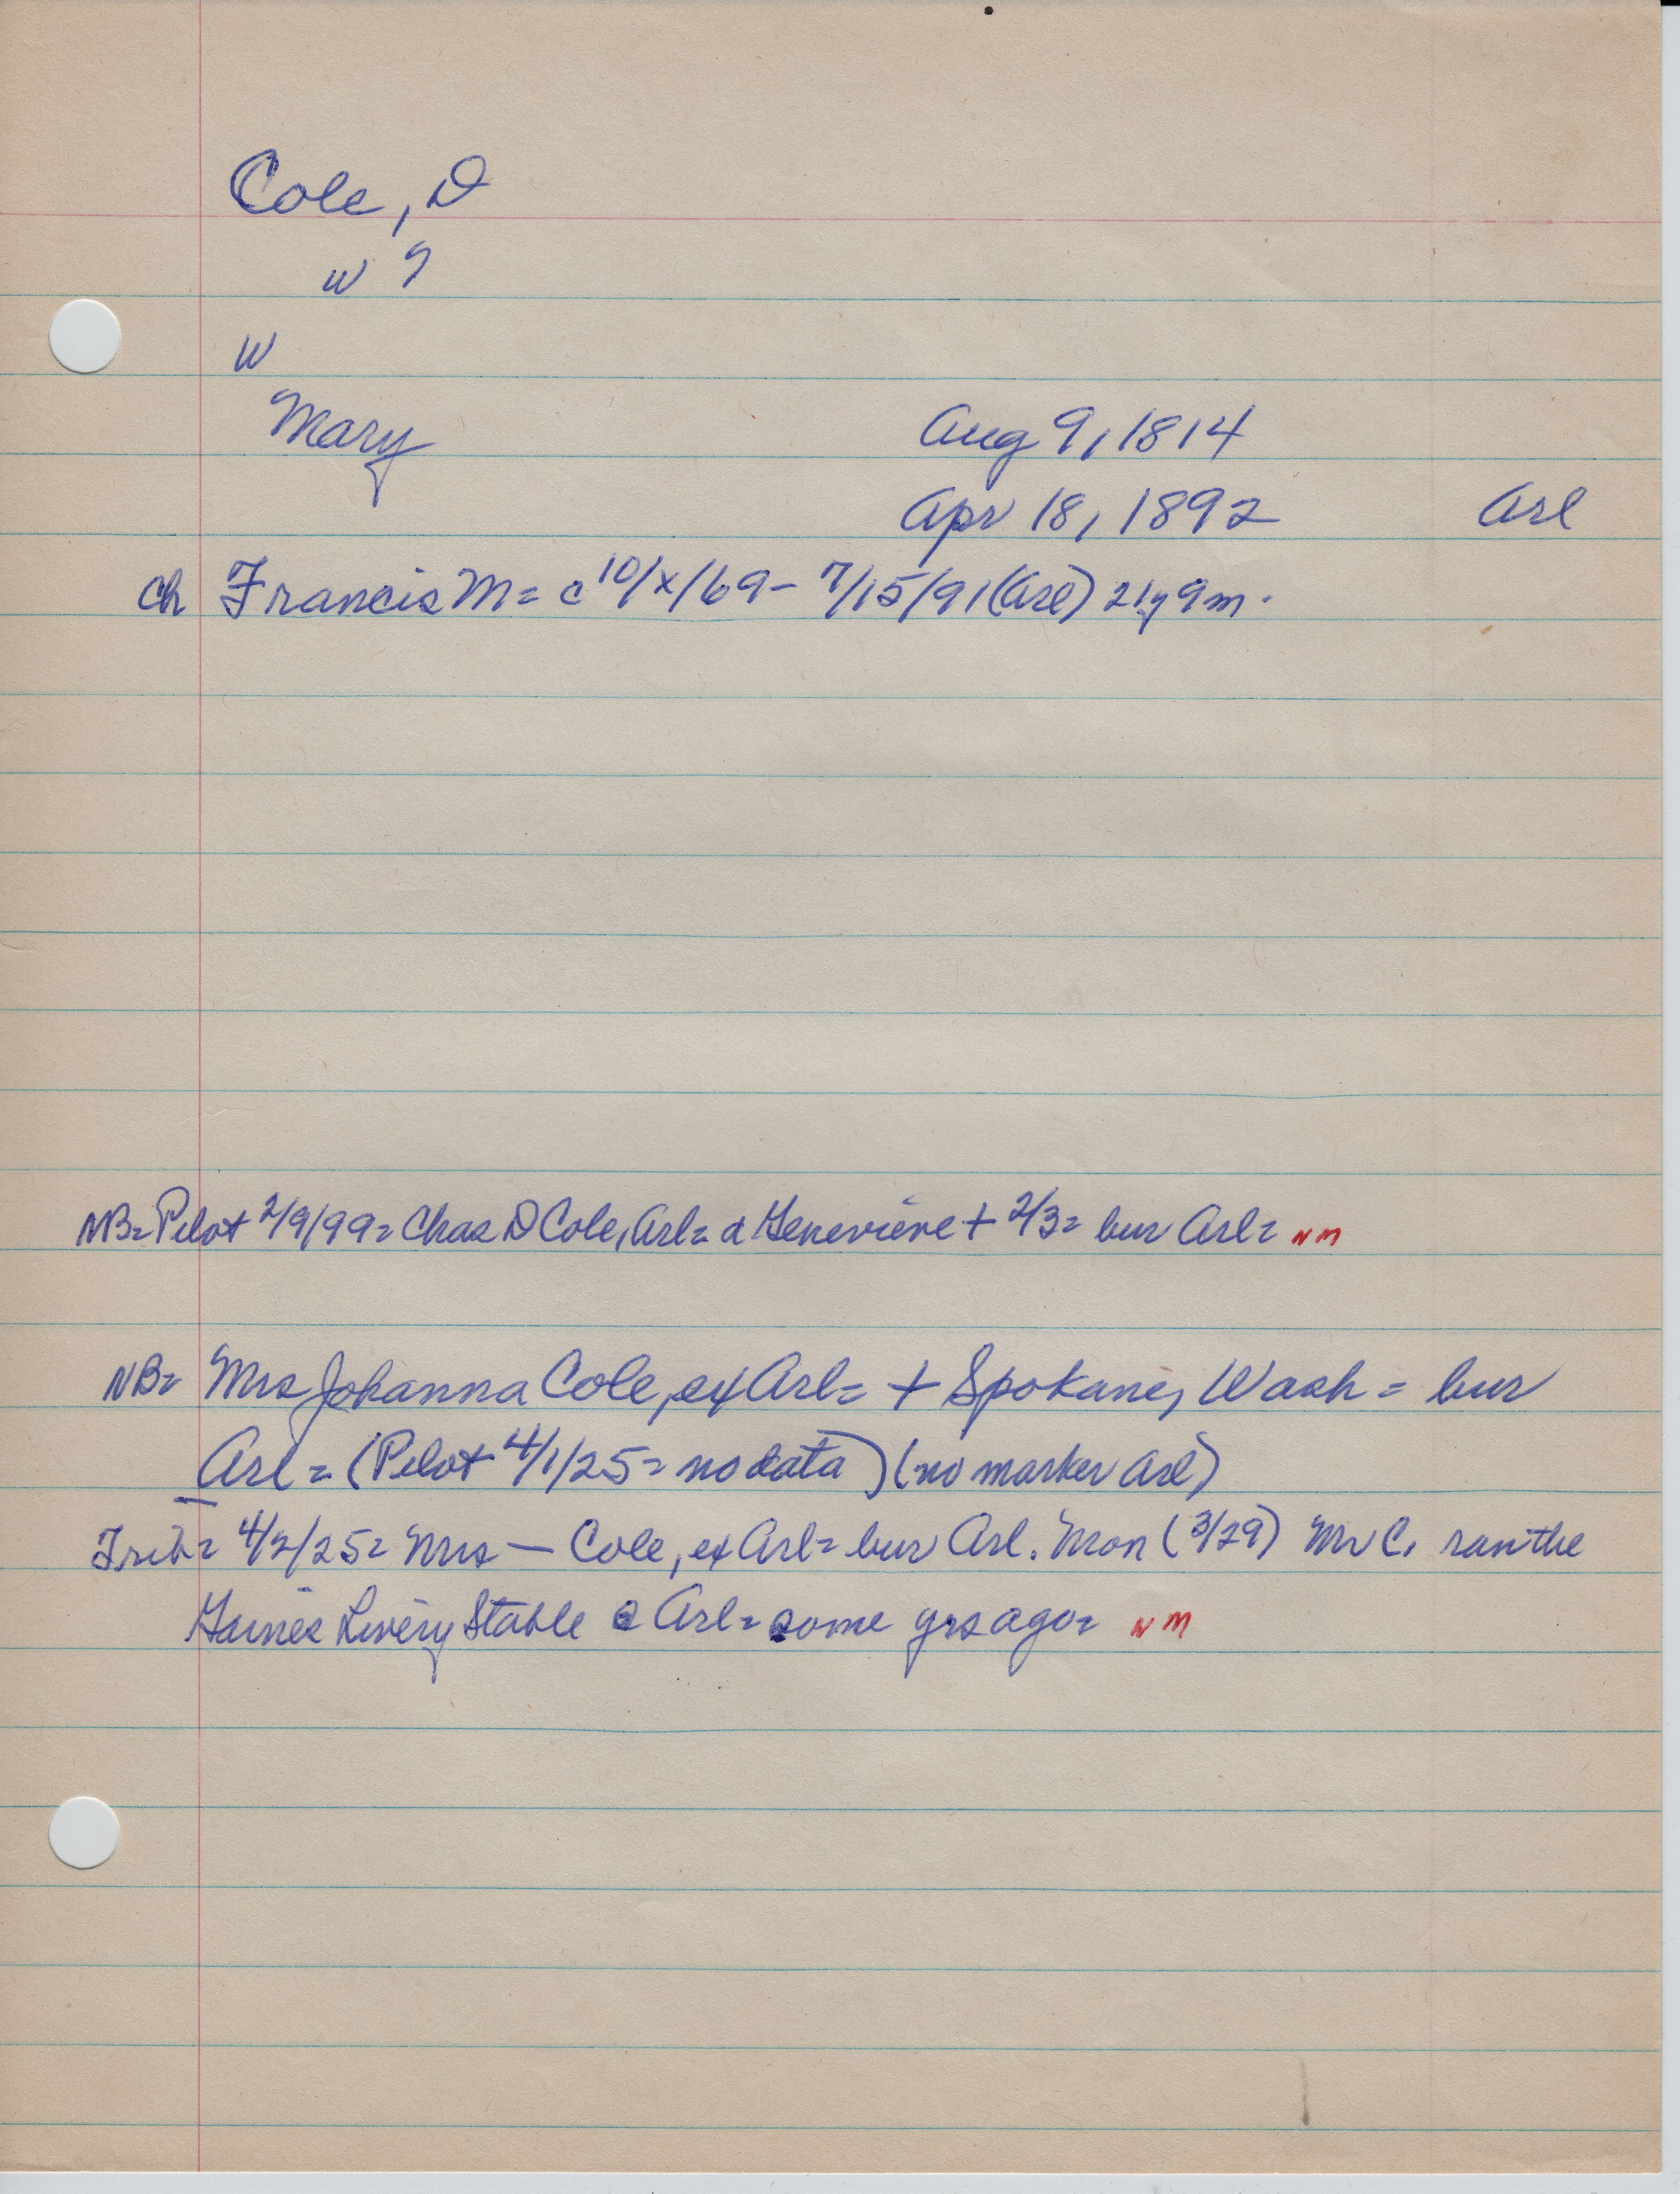 Cole, D
w ?
w
Mary Aug 9, 1814
Apr 18, 1892 Arl
ch Francis M = c 10/x/69 - 7/15/91 (Arl) 21y 9m.
NB= Pilot 2/9/99= Chas D Cole, Arl= d Genevieve + 2/3= bur Arl= NM
NB= Mrs Johanna Cole, ex Arl= + Spokane, Wash = bur
Arl = (Pilot 4/1/25= no data) (no marker Arl)
Trib= 4/2/25= Mrs — Cole, ex Arl= bur Arl. Mon (3/29) Mr C. ran the
Livery Stable @ Arl= some yrs ago= NM